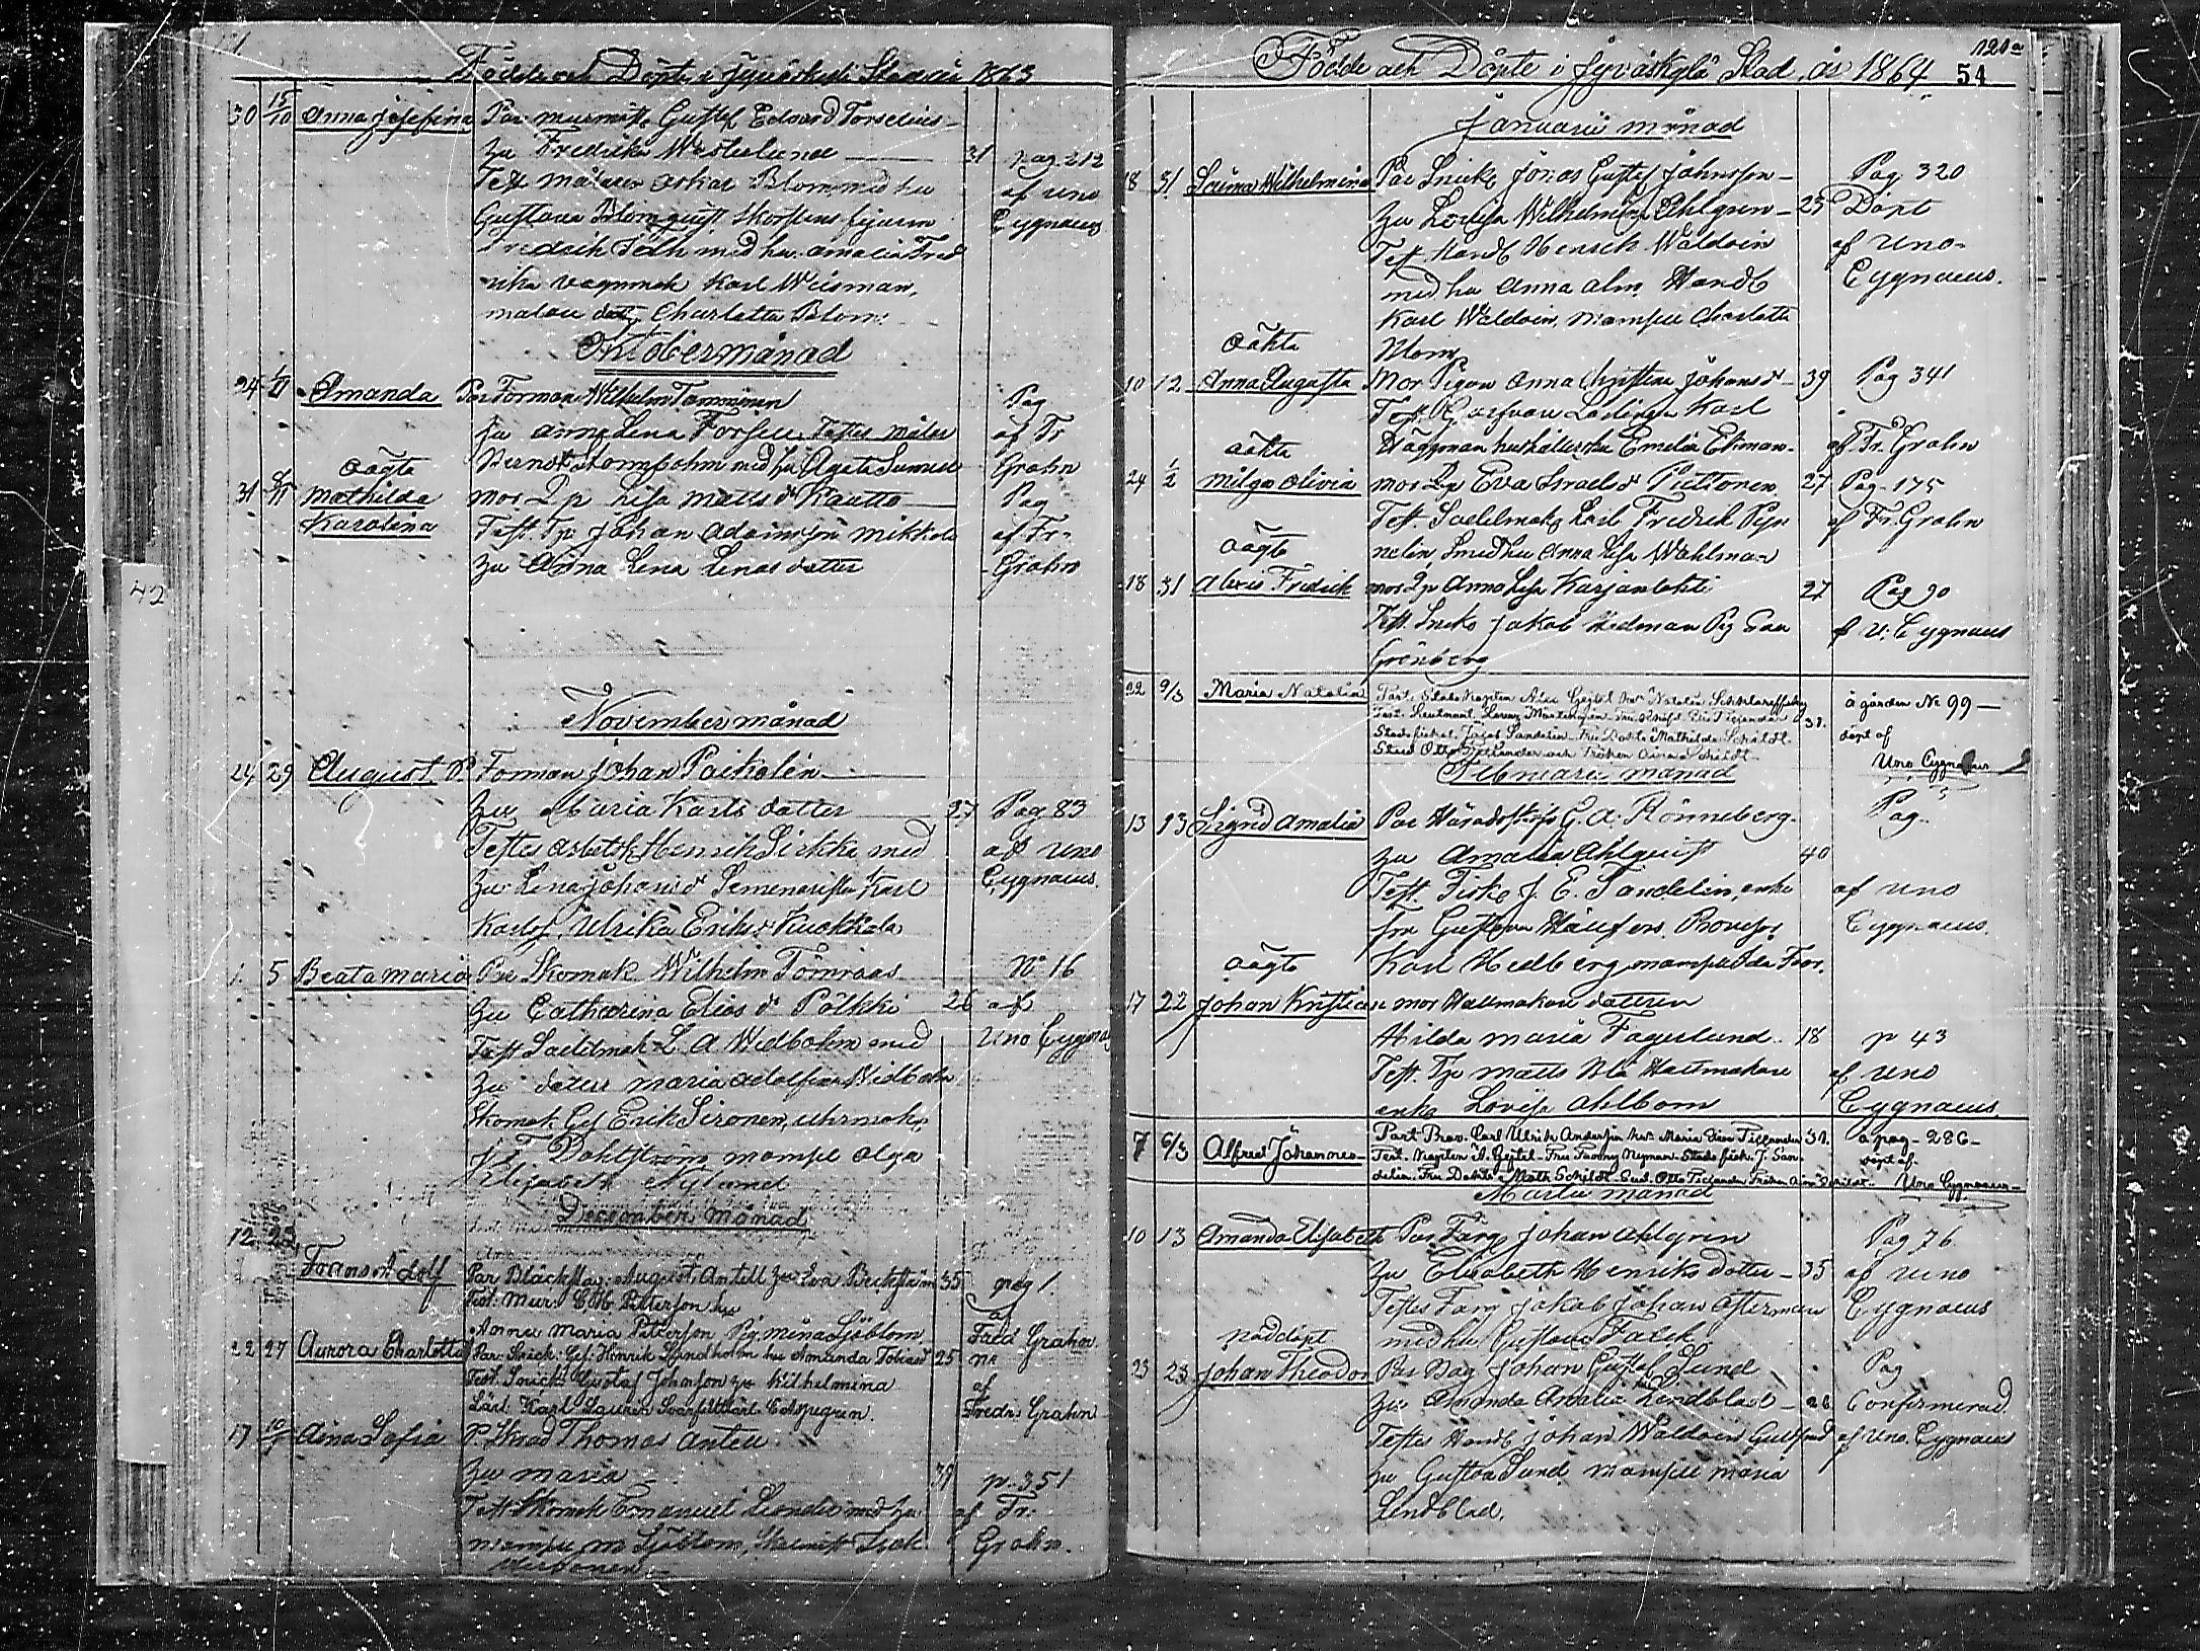 Födde och Döpte i Jyväskylä Stad år 1863
30 15/10 Anna Josefina Par murmäst Gustaf Edvard Torselius
hu Fredrika Westerlund 31 pag. 212
Test målaren Oskar Blom med hu af Uno
Gustava Blomquist, Skorstens fejaren Cygnaeus
Fredrik med hu. Amalia Fred
rika vagnmak Karl Weisman,
malare dotr. Charlotta Blom.
Oktober månad
24 1/11 Amanda Par Forman Wilhelm Tamminen Pag
hu Anna Lena Forsell. Testes målar af Fr
oägta med hu Agata Grahn
31 8/11 Mathilda mor Pp Lisa Matts dr Kautto Pag
Karolina Test. Tp Johan Adamsson Mikkola af Fr.
hu Anna Lena Lenasdotter Grahn
42
November månad
24 29 August P. Forman Johan Paikolén
hu Maria Karls dotter 27 Pag 83
Testes arbetsk Henrik Sirkka med af Uno
hu Lena Johans dr Karl Cygnaeus.
Karlss. Ulrika Eriks dr Kuokkala
1. 5 Beata Maria Par Skomak Wilhelm Törnroos No 16
hu Catharina Elias dr Pölkki 26 af
Test Sadelmak L. A. Widbohm med Uno Cygnaeus
hu dotter Maria Adolfina Widbohm
Skomak Ges Erik Sironen, uhrmak.
Dahlström mamsel Olga
Elizabeth Nylund
December månad
12 Frans Adolf Par Bläckslag: August Antell hu Eva Beckström 35 pag 1.
Test: Mur: C. H. Petterson hu af
Anna Maria Petterson Pig. Mina Sjöblom Fredr Grahn
22 27 Aurora Charlotta Par: Snick: Ges: Henrik Lindholm hu Amanda Tobiasdr 25 No
Test. Snick: Gustaf Johnson hu Wilhelmina af
Lärl. Karl Fredr: Grahn
17 10/1 Aina Sofia P. Skrad Thomas Antell
hu Maria 39 p. 351
Test Skomak Emanuel med hu af Fr:
mamsell M Sjöblom, Grahn.
121a
Födde och Döpte i Jyväskylä Stad, år 1864 54
Januarii månad
18 31 Saima Wilhelmina Par Snick Jonas Gustaf Johnsson Pag 320
hu Lovisa Wilhelmina Ahlgren 25 Döpt
Test. Handl Henrik Waldvin af Uno
med hu Anna Alm. Handl Cygnaeus.
Karl Waldvin, mamsell Charlotta
oäkta Blom
10 12 Anna Augusta Mor Pigan Anna Christina Johans dr 39 Pag 341
Test. Garfvare Lärlingen Karl
oäkta Häggman hushållerska Emelia Ekman. af Fr. Grahn
24 1/2 Milga Olivia mor Pp Eva Israels dr Puttonen 27 Pag. 175
Test. Sadelmak Karl Fredrik af Fr. Grahn
oägta med hu Anna Lisa Wahlman
18 31 Alexis Fredrik mor Pp Anna Lisa Karjanlahti 27 Pag 90
Test. Snick Jakob Hedman Pig af U. Cygnaeus
Grönberg
22 9/3 Maria Natalia Par: Stabs Kapten Alex Gejtel hu Natalia 31. å gården No 99
Test. Lieutnant Ticlander döpt af
Stadsfiskal Jacob Sandelin Fru Dokt:a Mathilda Schildt. Uno Cygnaeus
Stud Otto Ticlander och Fröken Aina Schildt.
Februarii månad
13 13 Sigrid Amalia Par Häradsskrifv G. A. Rönneberg Pag.
hu Amalia Ahlquist 40
Test. Fisk J. E. Sandelin, enke af Uno
fru Gustava Häufers. Provisor Cygnaeus.
oägta Karl Hedberg mamsell Ida
17 22 Johan Kristian mor Hattmakare dottren
Hilda Maria Fagerlund 18 p 43
Test. Tp Matts Hattmakare af Uno
enka Lovisa Ahlbom Cygnaeus
7 6/3 Alfred Johannes Par: Prov. Carl Ulrik Andersin hu Maria Ticlander 31. å pag 286
Test. Kapten A. Gejtel Fru Fanny Nyman Stadsfisk. J. San- döpt af
delin. Fru Dokt:a Math Schildt. Stud. Otto Ticlander Fröken Aina Schildt. Uno Cygnaeus
Martii månad
10 13 Amanda Elisabeth Par Färg Johan Ahlgren Pag 76
hu Elisabeth Henriks dotter 35 af Uno
Testes Jakob Johan Österman Cygnaeus
nöddöpt med hu Gustava Falck
23 23 Johan Theodor Par Bag Johan Gustaf Lund Pag
hu Amanda Amalia Lindblad 26 Confirmerad
Testes Handl Johan Waldvin af Uno. Cygnaeus
hu Gustava Lund mamsell Maria
Lindblad.